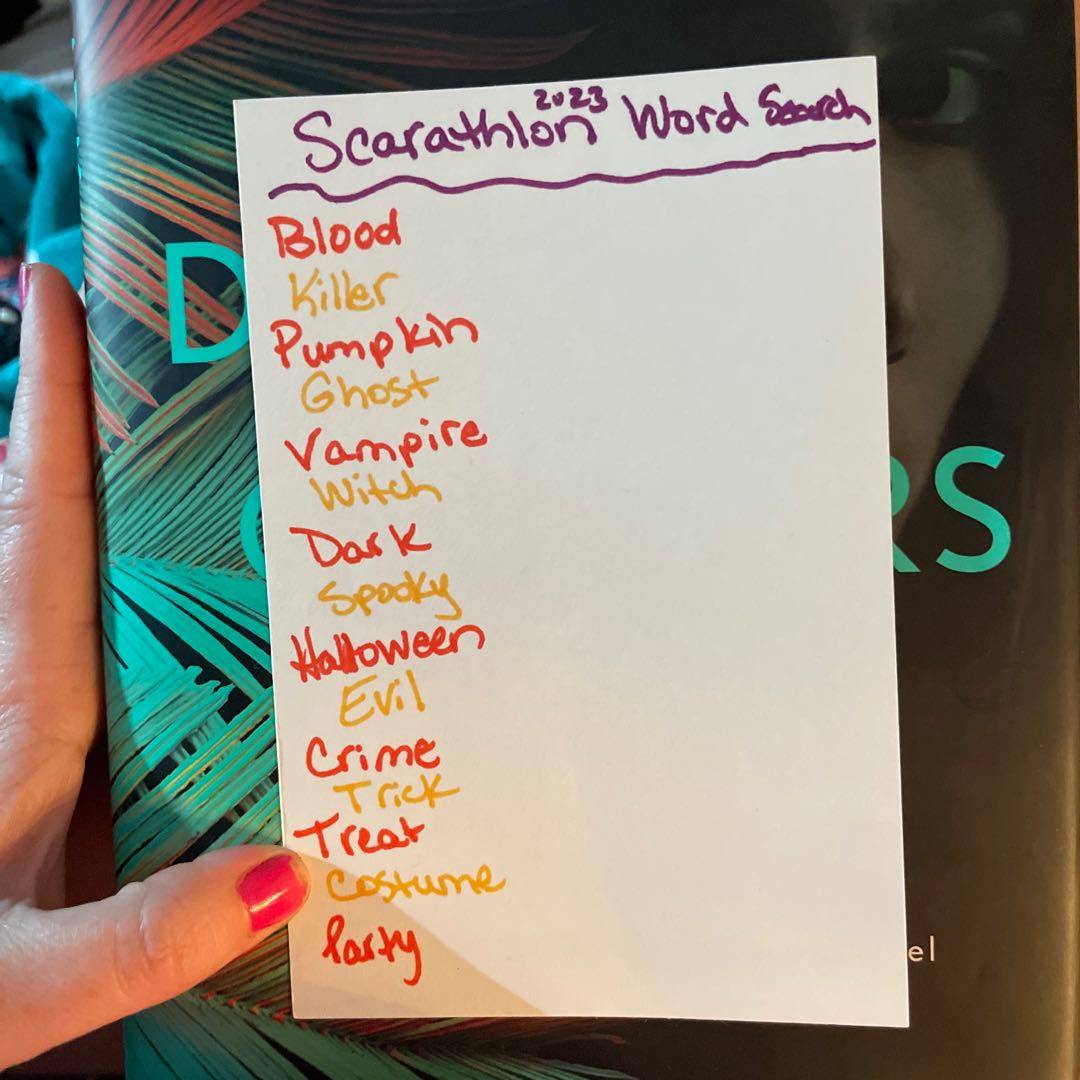 Scarathlon 2023 Word Search
Blood
Killer
Pumpkin
Ghost
Vampire
Witch
Dark
Spooky
Halloween
Evil
Crime
Trick
Treat
Costume
Party
D
RS
el